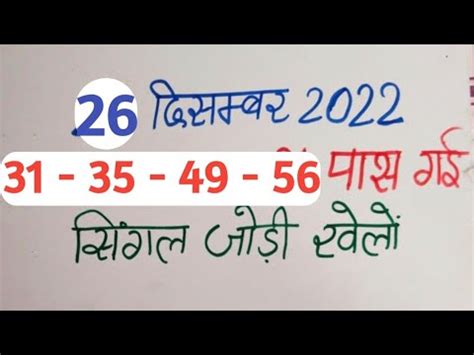 26 दिसम्बर 2022
31 - 35 - 49 - 56 पास गई
सिंगल जोड़ी खेलों